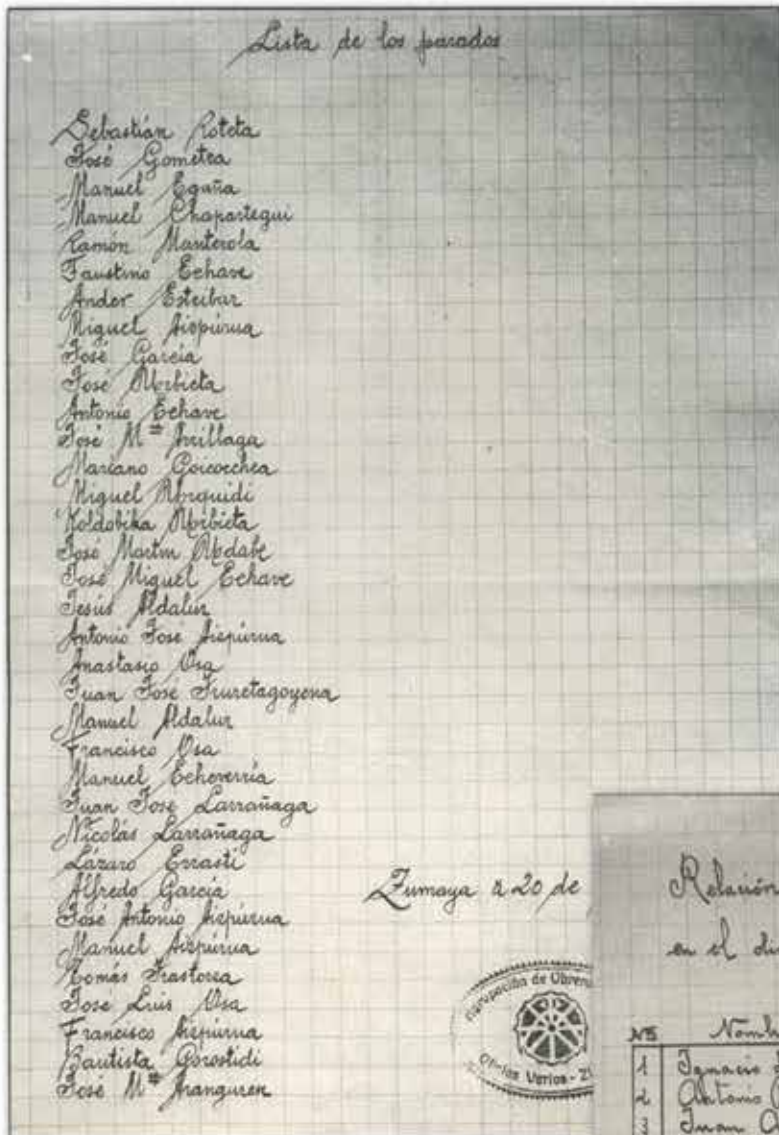 Lista de los parados
Sebastián Roteta
José Gometza
Manuel Egaña
Manuel Chapartegui
Ramón Manterola
Faustino Echave
Ander Esteibar
Miguel Aizpúrua
José García
José Urbieta
Antonio Echave
José Mª Arrillaga
Mariano Goicoechea
Miguel Urquidi
Koldobika Urbieta
José Martín Uzdabe
José Miguel Echave
Jesús Aldalur
Antonio José Aizpúrua
Anastasio Osa
Juan José Iruretagoyena
Manuel Aldalur
Francisco Osa
Manuel Echeverría
Juan José Larrañaga
Nicolás Larrañaga
Lázaro Errasti
Alfredo García
José Antonio Aizpúrua
Manuel Aizpúrua
Tomás Trastorza
José Luis Osa
Francisco Aizpúrua
Bautista Gorostidi
José Mª Aranguren
Zumaya a 20 de
Agrupación de Obreros
Oficios Varios - Z
Relación
en el di
Nº Nomb
1 Ignacio
2 Antonio
3 Juan